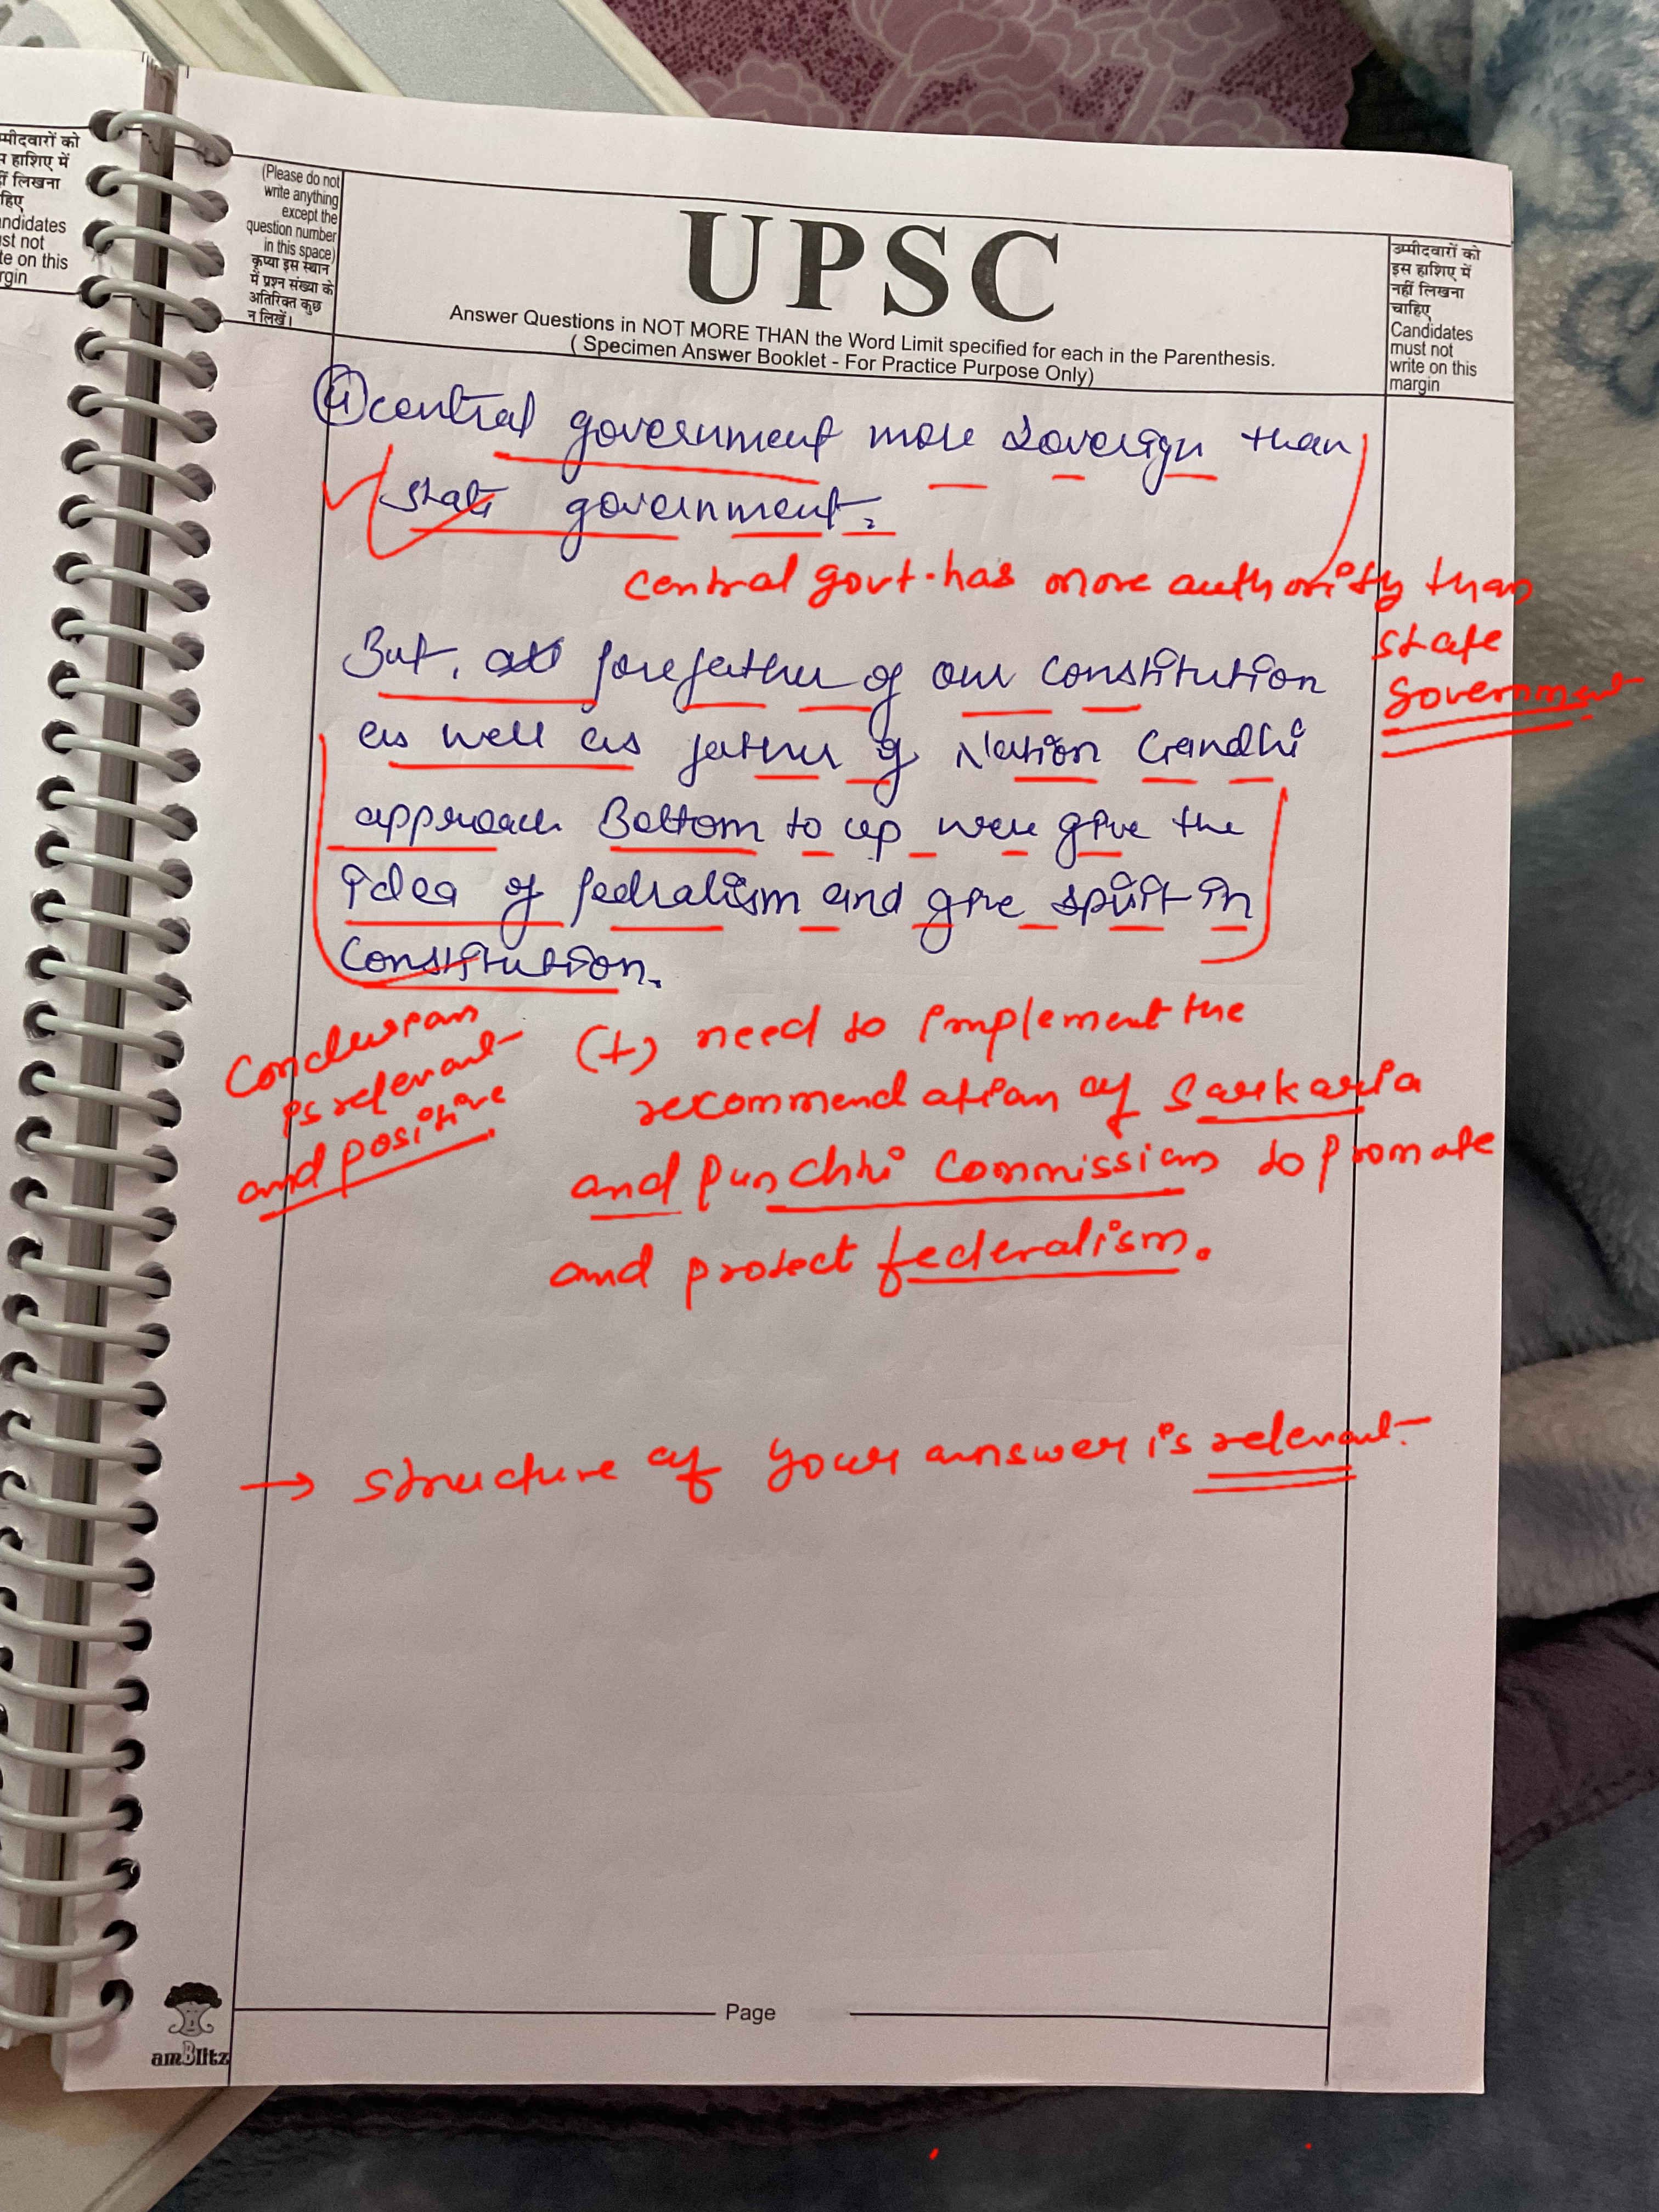 म्मीदवारों को
स हाशिए में
हीं लिखना
हिए
andidates
ust not
te on this
rgin
(Please do not
write anything
except the
question number
in this space)
कृप्या इस स्थान
में प्रश्न संख्या के
अतिरिक्त कुछ
न लिखें।
UPSC
Answer Questions in NOT MORE THAN the Word Limit specified for each in the Parenthesis.
( Specimen Answer Booklet - For Practice Purpose Only)
उम्मीदवारों को
इस हाशिए में
नहीं लिखना
चाहिए
Candidates
must not
write on this
margin
central government more sovereign than
state government.
central govt. has more authority than
state
Government
But, forefather of our constitution
as well as father of Nation Gandhi
approach Bottom to up were give the
idea of fedralism and give spirit in
Constitution.
Conclusion
is relevant
and positive
(+) need to implement the
recommendation of Sarkaria
and Punchhi Commission to promote
and protect federalism.
→ structure of your answer is relevant.
Page
amBlitz